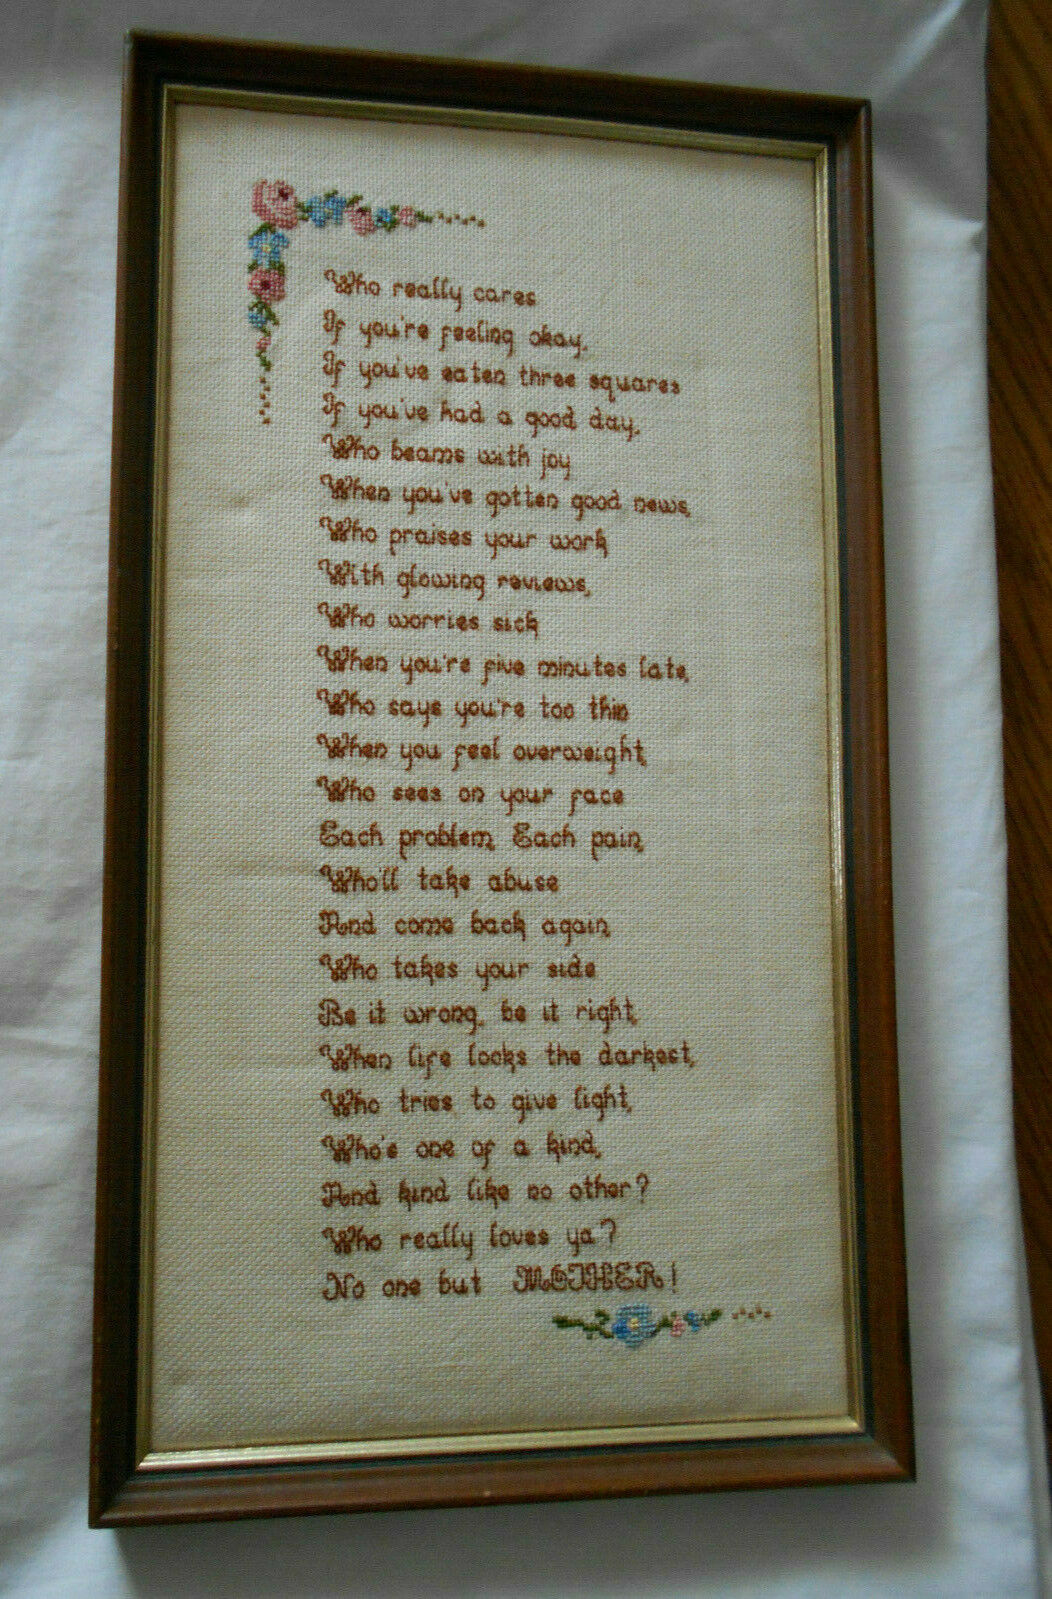 Who really cares
If you're feeling okay,
If you've eaten three squares
If you've had a good day,
Who beams with joy
When you've gotten good news,
Who praises your work
With glowing reviews,
Who worries sick
When you're five minutes late,
Who says you're too thin
When you feel overweight,
Who sees on your face
Each problem, Each pain,
Who'll take abuse
And come back again,
Who takes your side
Be it wrong, be it right,
When life looks the darkest,
Who tries to give light,
Who's one of a kind,
And kind like no other?
Who really loves ya?
No one but MOTHER!